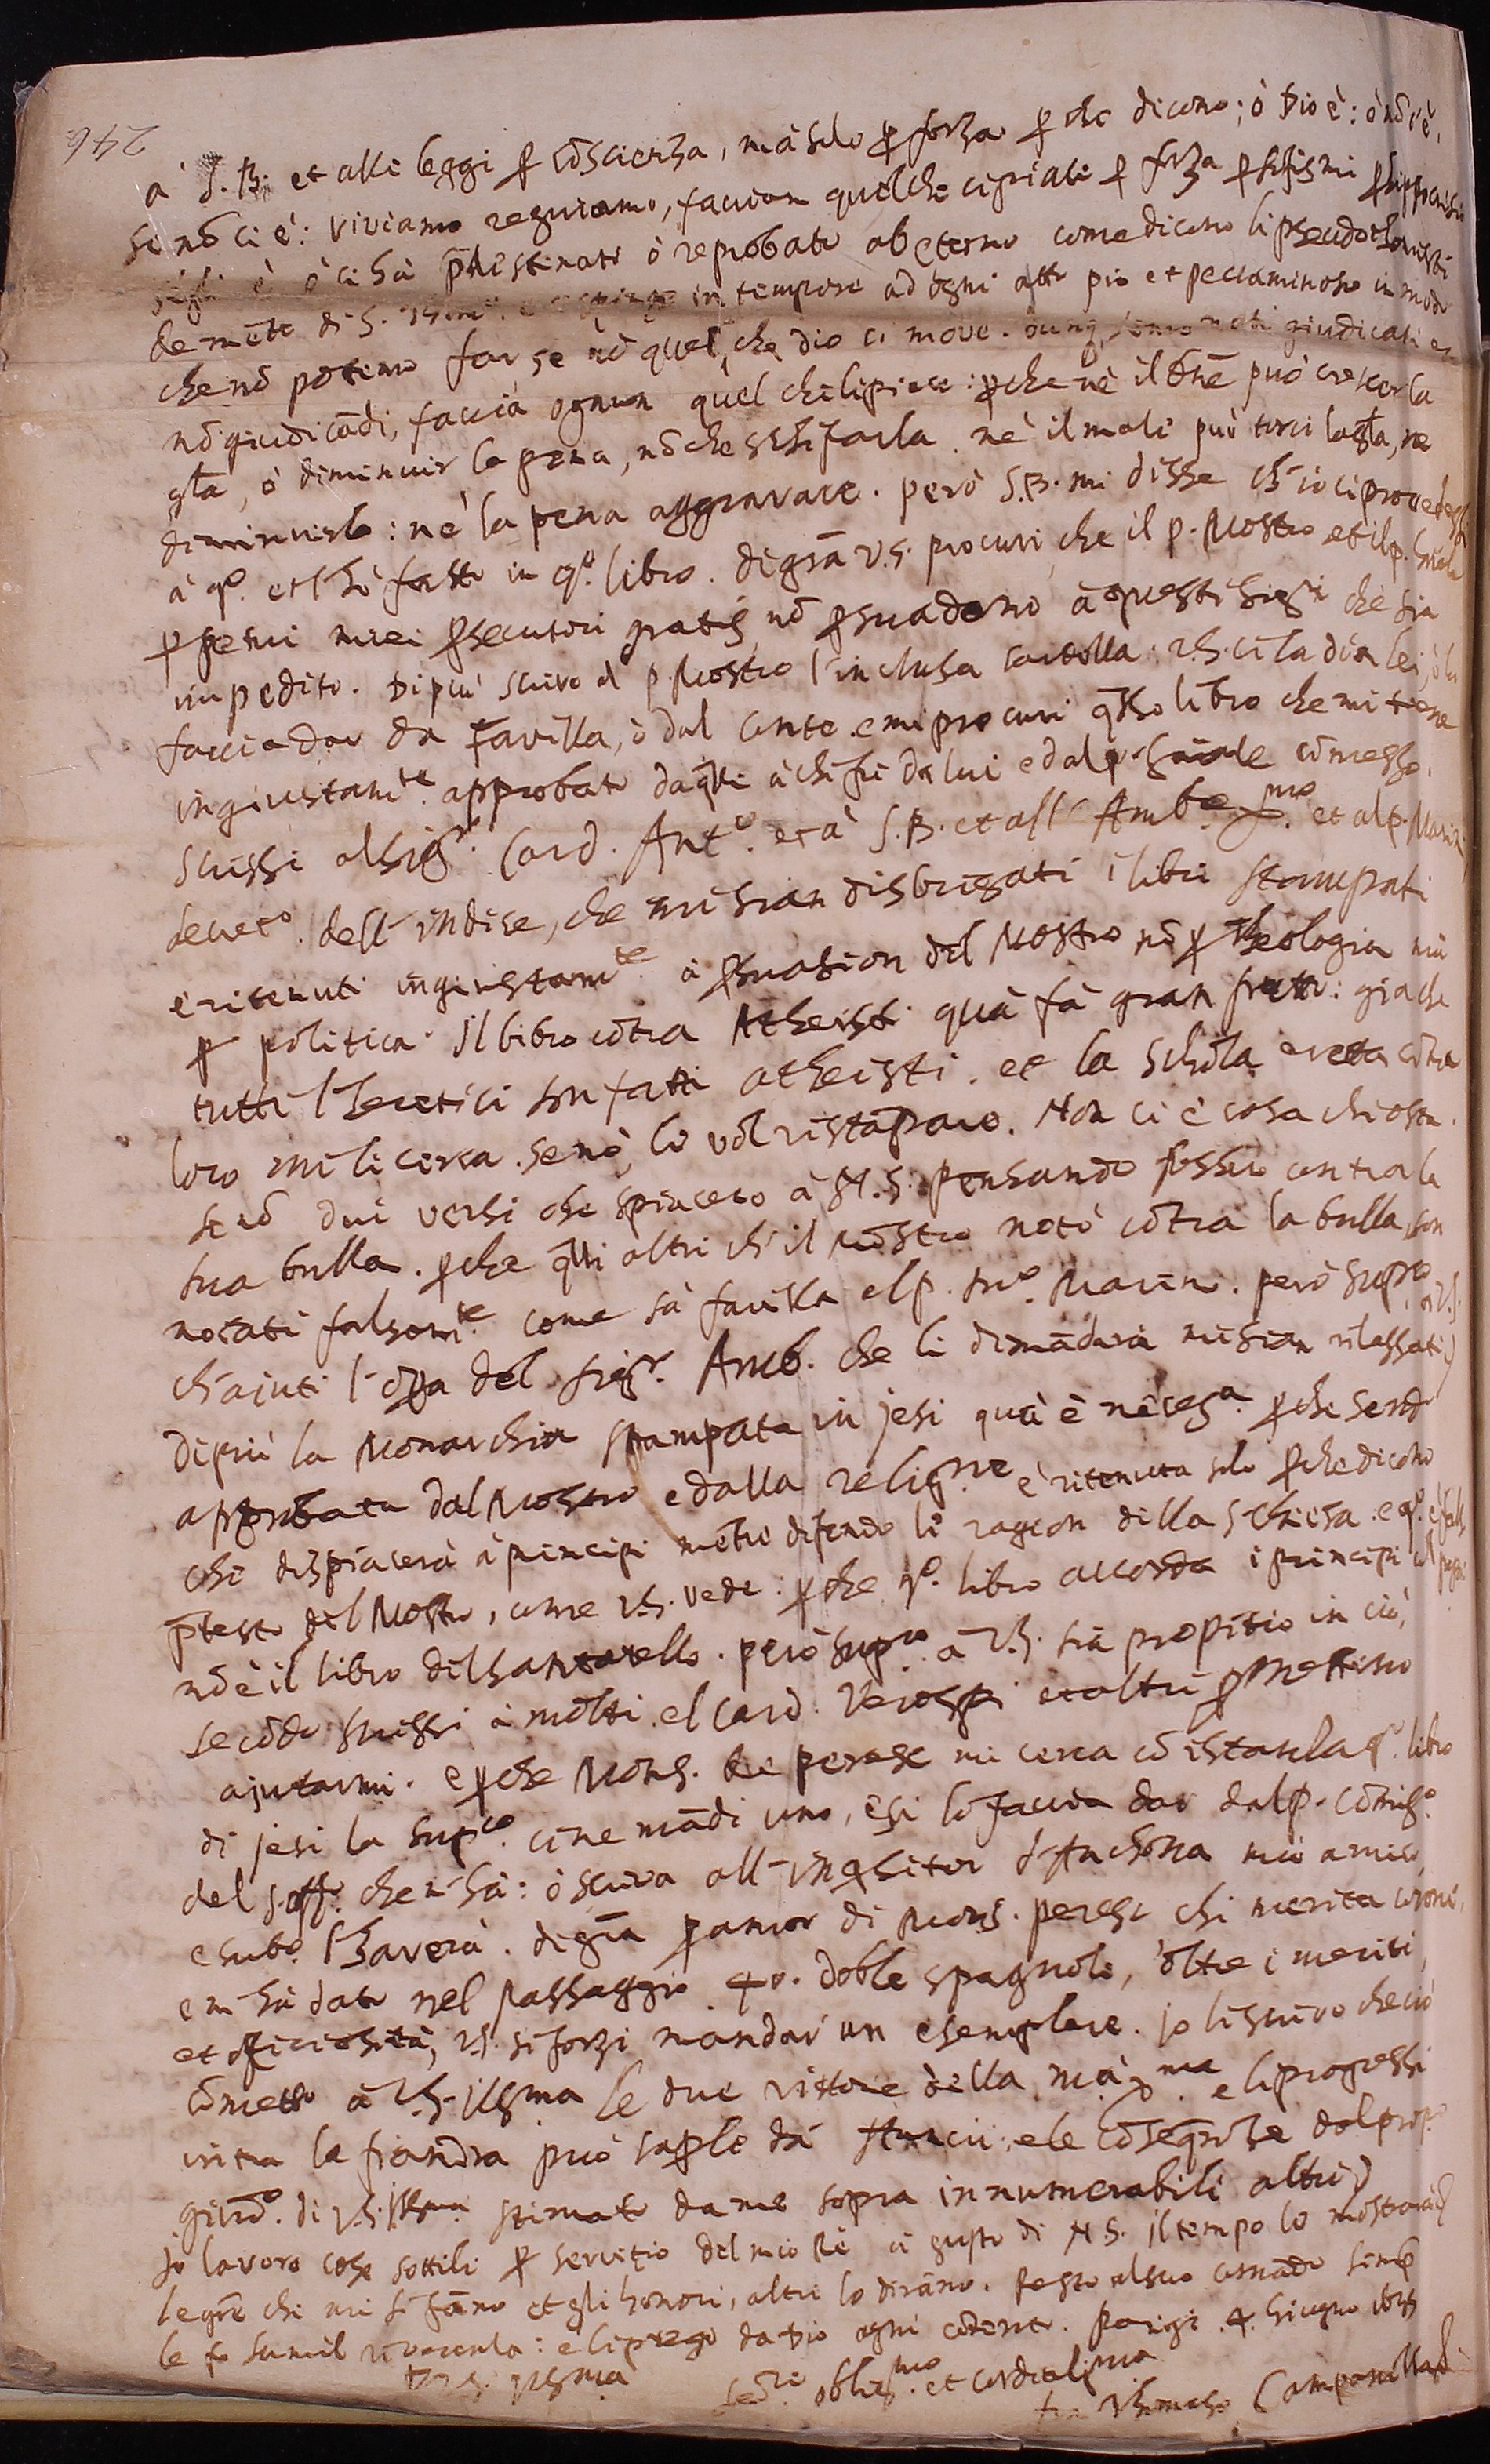 246
à S. B. et alle leggi ꝑ cōscienza, mà solo ꝑ forza ꝑ che dicono; ò Dio è: ò nō c'è,
se nō ci è: viviamo reguiamo, facciam quel che ci piace ꝑ forza ꝑ sofismi
è ò ci hà p̄destinati ò reprobati ab eterno come dicono li pseudo
in tempore ad ogni atto pio et peccaminoso in modo
che nō potemo far se nō quel, che dio ci move. dunq semo nati giudicati
nō giudicādi, faccia ognun quel che li piace: ꝑche nè il bn̄e può crescer la
gl̄a, ò diminuir la pena, nō che satisfarla. nè il male può torci la gl̄a, ne
diminuirla: nè la pena aggravare. però S.B. mi disse ch'io ci provedessi
à q.º et l'hò fatto in q.º libro. di gr̄a V.S. procuri, che il p. Mostro et il p.
miei ꝑsecutori gratis nō ꝑsuadano à questi Sig.ri che sia
impedito. Di più scrivo al p. Mostro l'inclusa cartella: V.S. ci la dia lei, ò la
faccia dar da Favilla, ò dal conte e mi procuri q̄llo libro che mi tiene
ingiustam.te approbato da q̄lli à chi fù da lui e dal p. cōmesso.
scrissi al Sig.r Card. Ant.º et à S.B. et all' Amb.e et al p. Marini
secret.º dell'indice, che mi sian disbrigati i libri stampati
e ritenuti ingiustam.te à ꝑsuasion del Mostro nō ꝑ Theologia mà
ꝑ politica. Il libro cōtra Atheisti quà fà gran frutto: già che
tutti l'heretici son fatti atheisti. et la schola eretta cōtra
loro mi li cerca. se nò, lo vol ristāpare. Non ci è cosa chi osta.
se nō dui versi che spiacero à N.S. pensando fossero contra la
sua bulla. ꝑche q̄lli altri ch'il Mostro notò cōtra la bulla, son
notati falsam.te come sà favilla e'l p. Marini. però sup.co à V.S.
ch'ajuti l'oꝑa del Sig.r Amb. che li dimādarà mi sian rilassati
di più la Monarchia stampata in jesi quà è necess.a ꝑche sendo
approbata dal Mostro e dalla relig.ne è ritenuta solo ꝑche dicono
che dispiacerà à principi mētre difendo le ragion della Chiesa. e q.º è fals
p̄testo del Mostro, come V.S. vede: ꝑche q.º libro accorda i principi col papa
nō è il libro del Santarello. però sup.co à V.S. sia propitio in ciò,
secōdo scrissi à molti. e'l Card. Verospi et altri ꝓmettero
ajutarmi. e ꝑche Mons. de peresc mi cerca cō istanza q.º libro
di jesi la sup.co cine mādi uno, e si lo faccia dar dal p. Cōmiss.º
del s. off.º che n'hà: ò scriva all'inq̄sitor d'Anchona mio amico,
e sub.º l'haverà. di gr̄a ꝑ amor di Mons. peresc chi merita corone,
e m'hà dato nel passaggio 40. doble spagnole, oltre i meriti,
et officiosità, V.S. si forzi mandar un esemplare. jo li scrivo che ciò
cōmetto à V.S. Ill.ma le due vittorie della
intra la fiandra può saꝑle da e le cōseq̄nze dal prop.º
giud.º di V.S. Ill.ma stimato da me sopra innumerabili altri
Io lavoro cose sottili ꝑ servitio del mio Rè à gusto di N.S. il tempo lo mostrarà
le gr̄e chi mi si fāno et gli honori, altri lo dirāno. resto al suo comādo semp̄
le fo humil riverenza: e li prego da Dio ogni cōtento. Parigi. 4. Giugno
D. V.S. Ill.ma
ser.re oblig.mo et cordial.mo
fra Thomaso Campanella